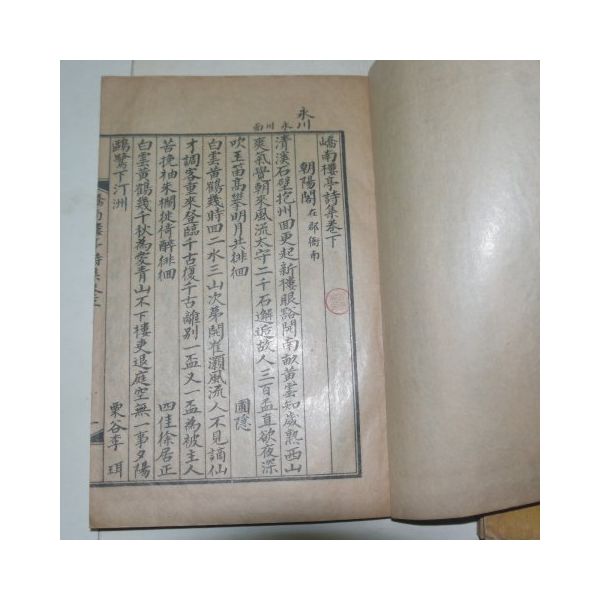 永川
永川面
嶠南樓亭詩集卷下
朝陽閣 在郡衙南
清溪石壁抱州回更起新樓眼豁開南畝黃雲知歲熟西山
爽氣覺朝來風流太守二千石邂逅故人三百盃直欲夜深
吹玉笛高攀明月共徘徊 圃隱
白雲黃鶴幾時回二水三山次第開崔灝風流人不見謫仙
才調客重來登臨千古復千古離別一盃又一盃為被主人
苦挽袖朱欄徙倚醉徘徊 四佳徐居正
白雲黃鶴幾千秋為愛青山不下樓吏退庭空無一事夕陽
鷗鷺下汀洲 栗谷李珥